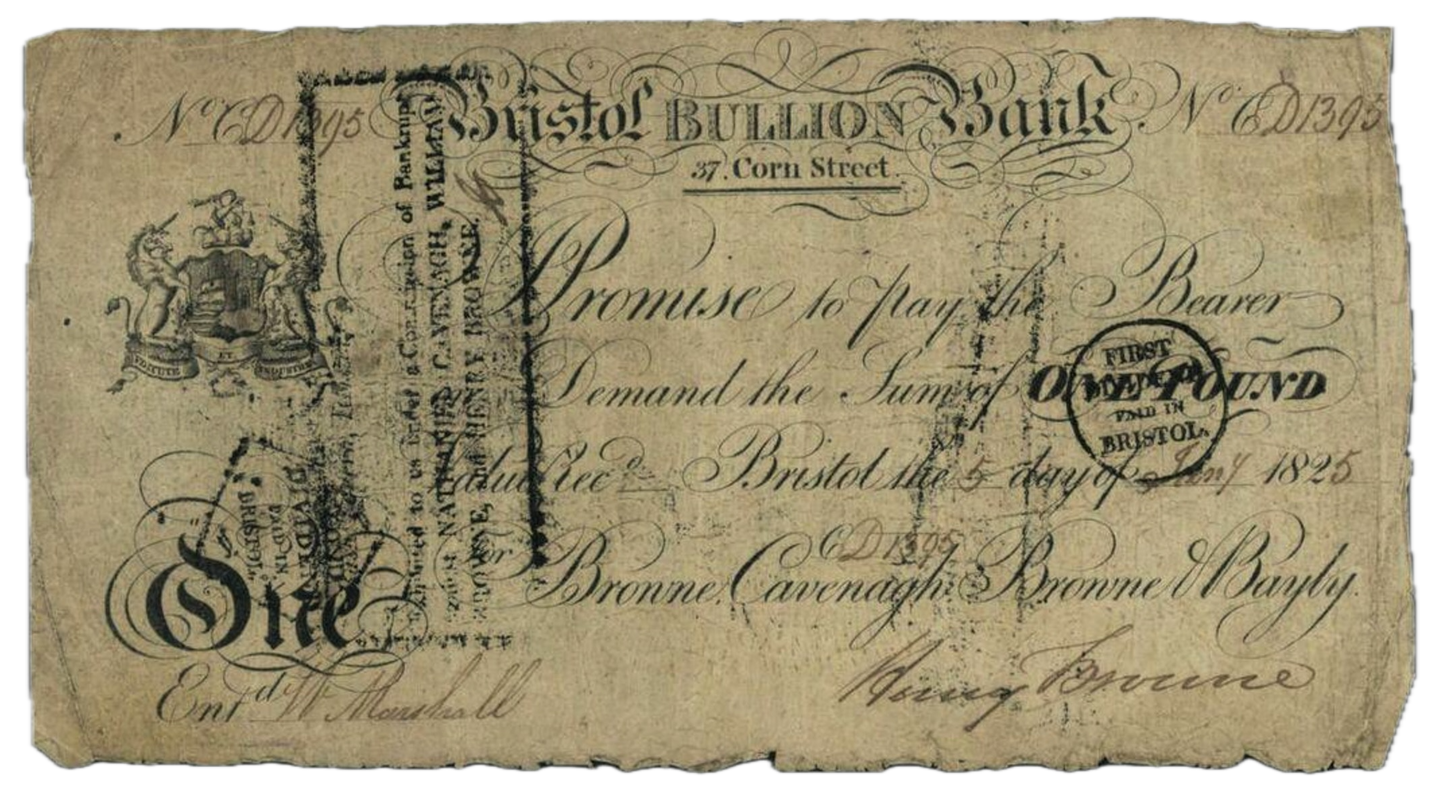 No CD1395 Bristol BULLION Bank No CD1395
37. Corn Street
Promise to pay the Bearer
Demand the Sum of ONE POUND
Rec'd Bristol the 5 day of Jany 1825
CD1395
For Browne, Cavenagh, Browne & Bayly.
One
Ent'd W Marshall
Henry Browne
VIRTUTE ET INDUSTRIA
FIRST
PAID IN
BRISTOL.
to us under a Commission of Bankrupt
against NATHANIEL CAVENAGH, WILLIAM
BROWNE, and HENRY BROWNE.
DIVIDEND
PAID IN
BRISTOL.